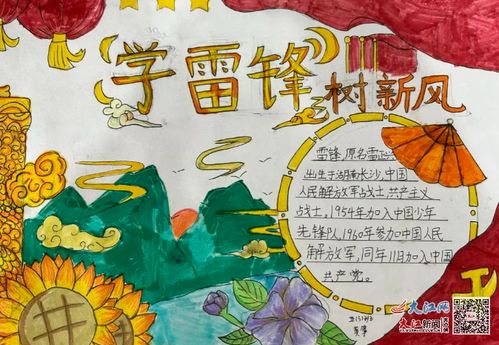 学雷锋
树新风
雷锋,原名雷正兴
出生于湖南长沙,中国
人民解放军战士,共产主义
战士,1954年加入中国少年
先锋队,1960年参加中国人民
解放军,同年11月加入中国
共产党。
大江网
大江新闻